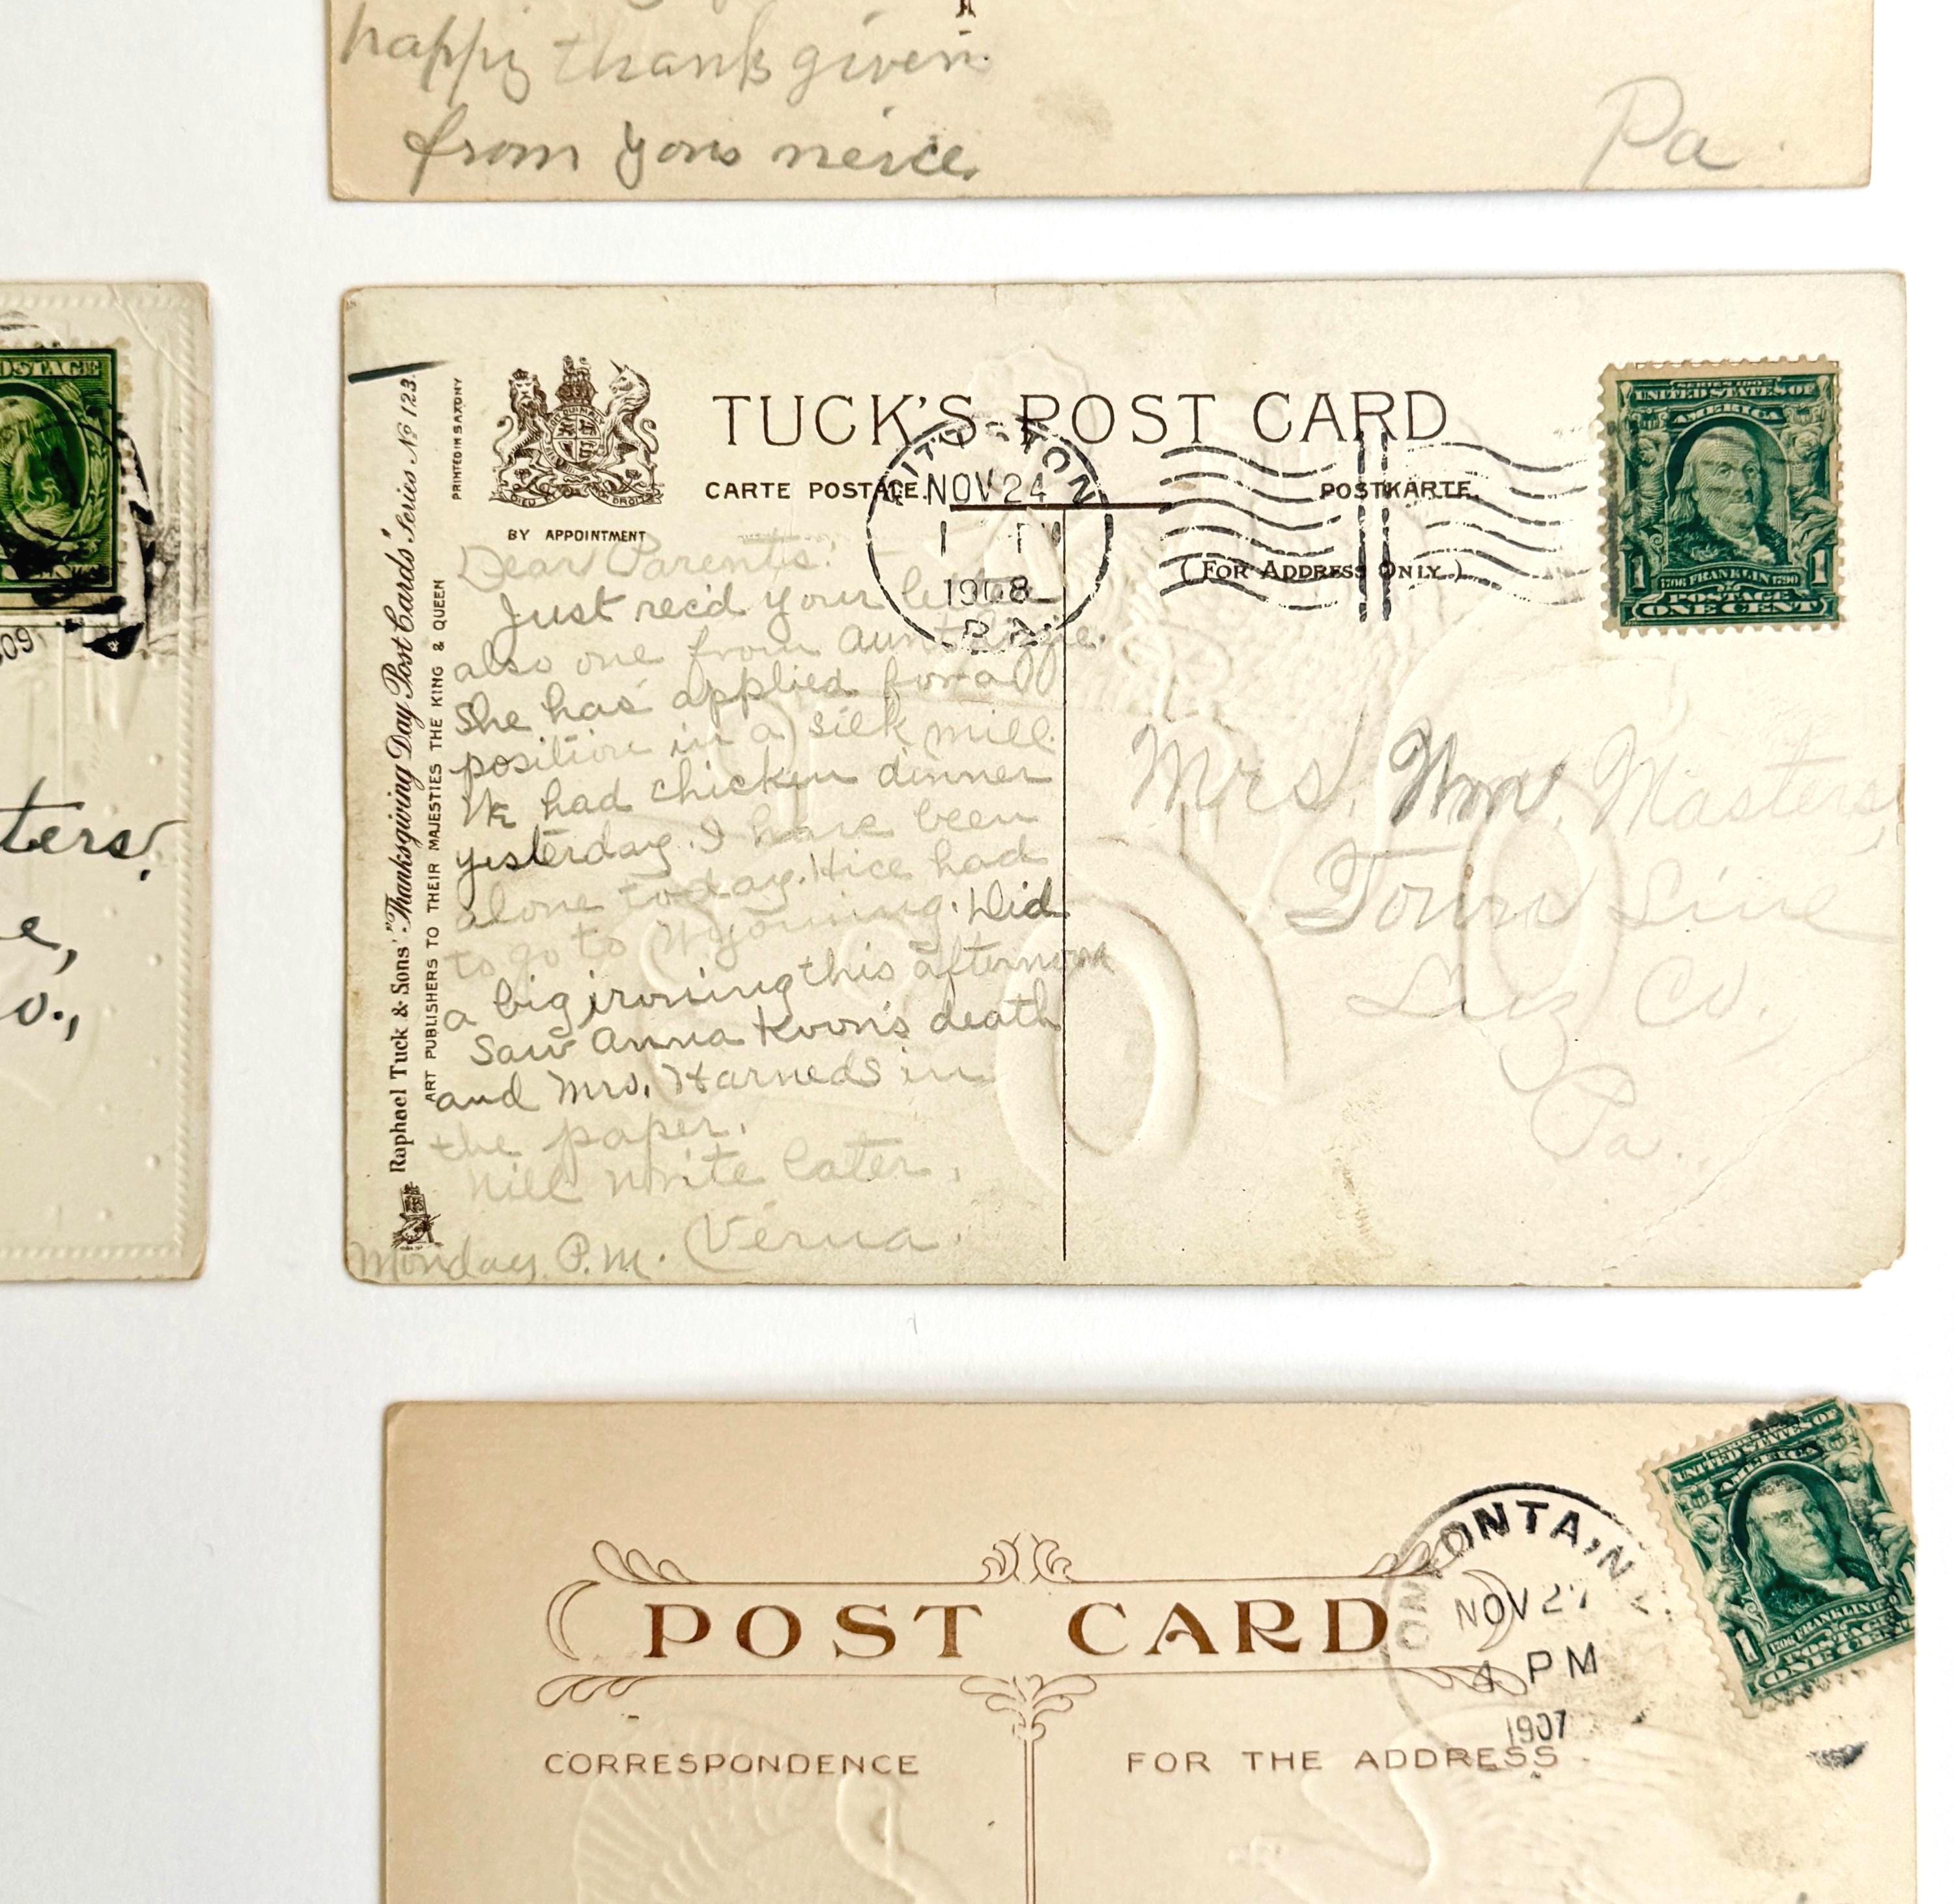 happy thanksgiven
from yous neice.
Pa.
POSTAGE
09
ters,
e,
o.,
TUCK'S POST CARD
CARTE POSTALE.
POSTKARTE.
(FOR ADDRESS ONLY.)
BY APPOINTMENT
PRINTED IN SAXONY
Raphael Tuck & Sons' "Thanksgiving Day Post Cards" Series No 123.
ART PUBLISHERS TO THEIR MAJESTIES THE KING & QUEEN
NOV 24
1908
PA.
SERIES 1902
UNITED STATES OF
AMERICA
1706 FRANKLIN 1790
1 1
POSTAGE
ONE CENT
Dear Parents:
Just rec'd your letter
also one from Aunt
She has applied for a
position in a silk mill
We had chicken dinner
yesterday. I have been
alone today. Hice had
to go to Wyoming. Did
a big ironing this afternoon
Saw Anna Koon's death
and Mrs. Harneds in
the paper.
Will write later.
Verna.
Monday P.M.
Mrs. Wm. Masters,
Town Line
Luz Co.
Pa.
POST CARD
CORRESPONDENCE
FOR THE ADDRESS
NOV 27
4 PM
1907
SERIES 1902
UNITED STATES OF
AMERICA
1706 FRANKLIN
1
POSTAGE
ONE CENT